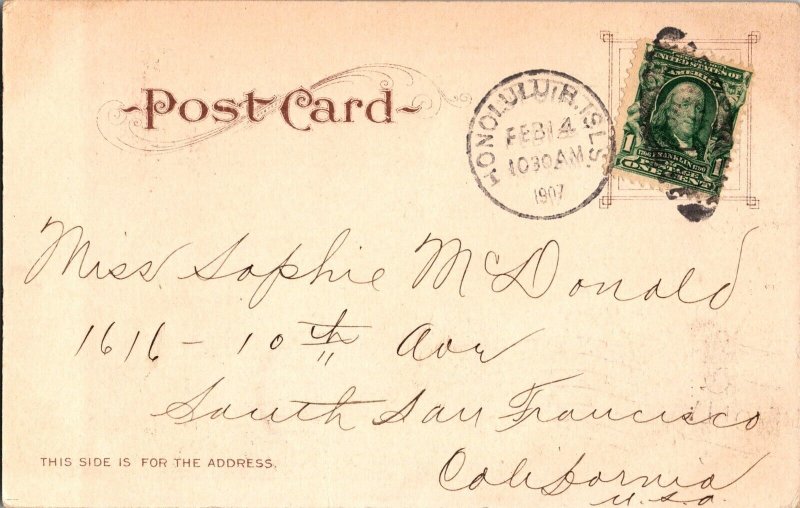 Post Card
HONOLULU, H. ISLS.
FEB 14
10 30 AM
1907
UNITED STATES OF
AMERICA
1 FRANKLIN 1
ONE CENT
Miss Sophie McDonald
1616 - 10th Ave
South San Francisco
California
U.S.A.
THIS SIDE IS FOR THE ADDRESS.